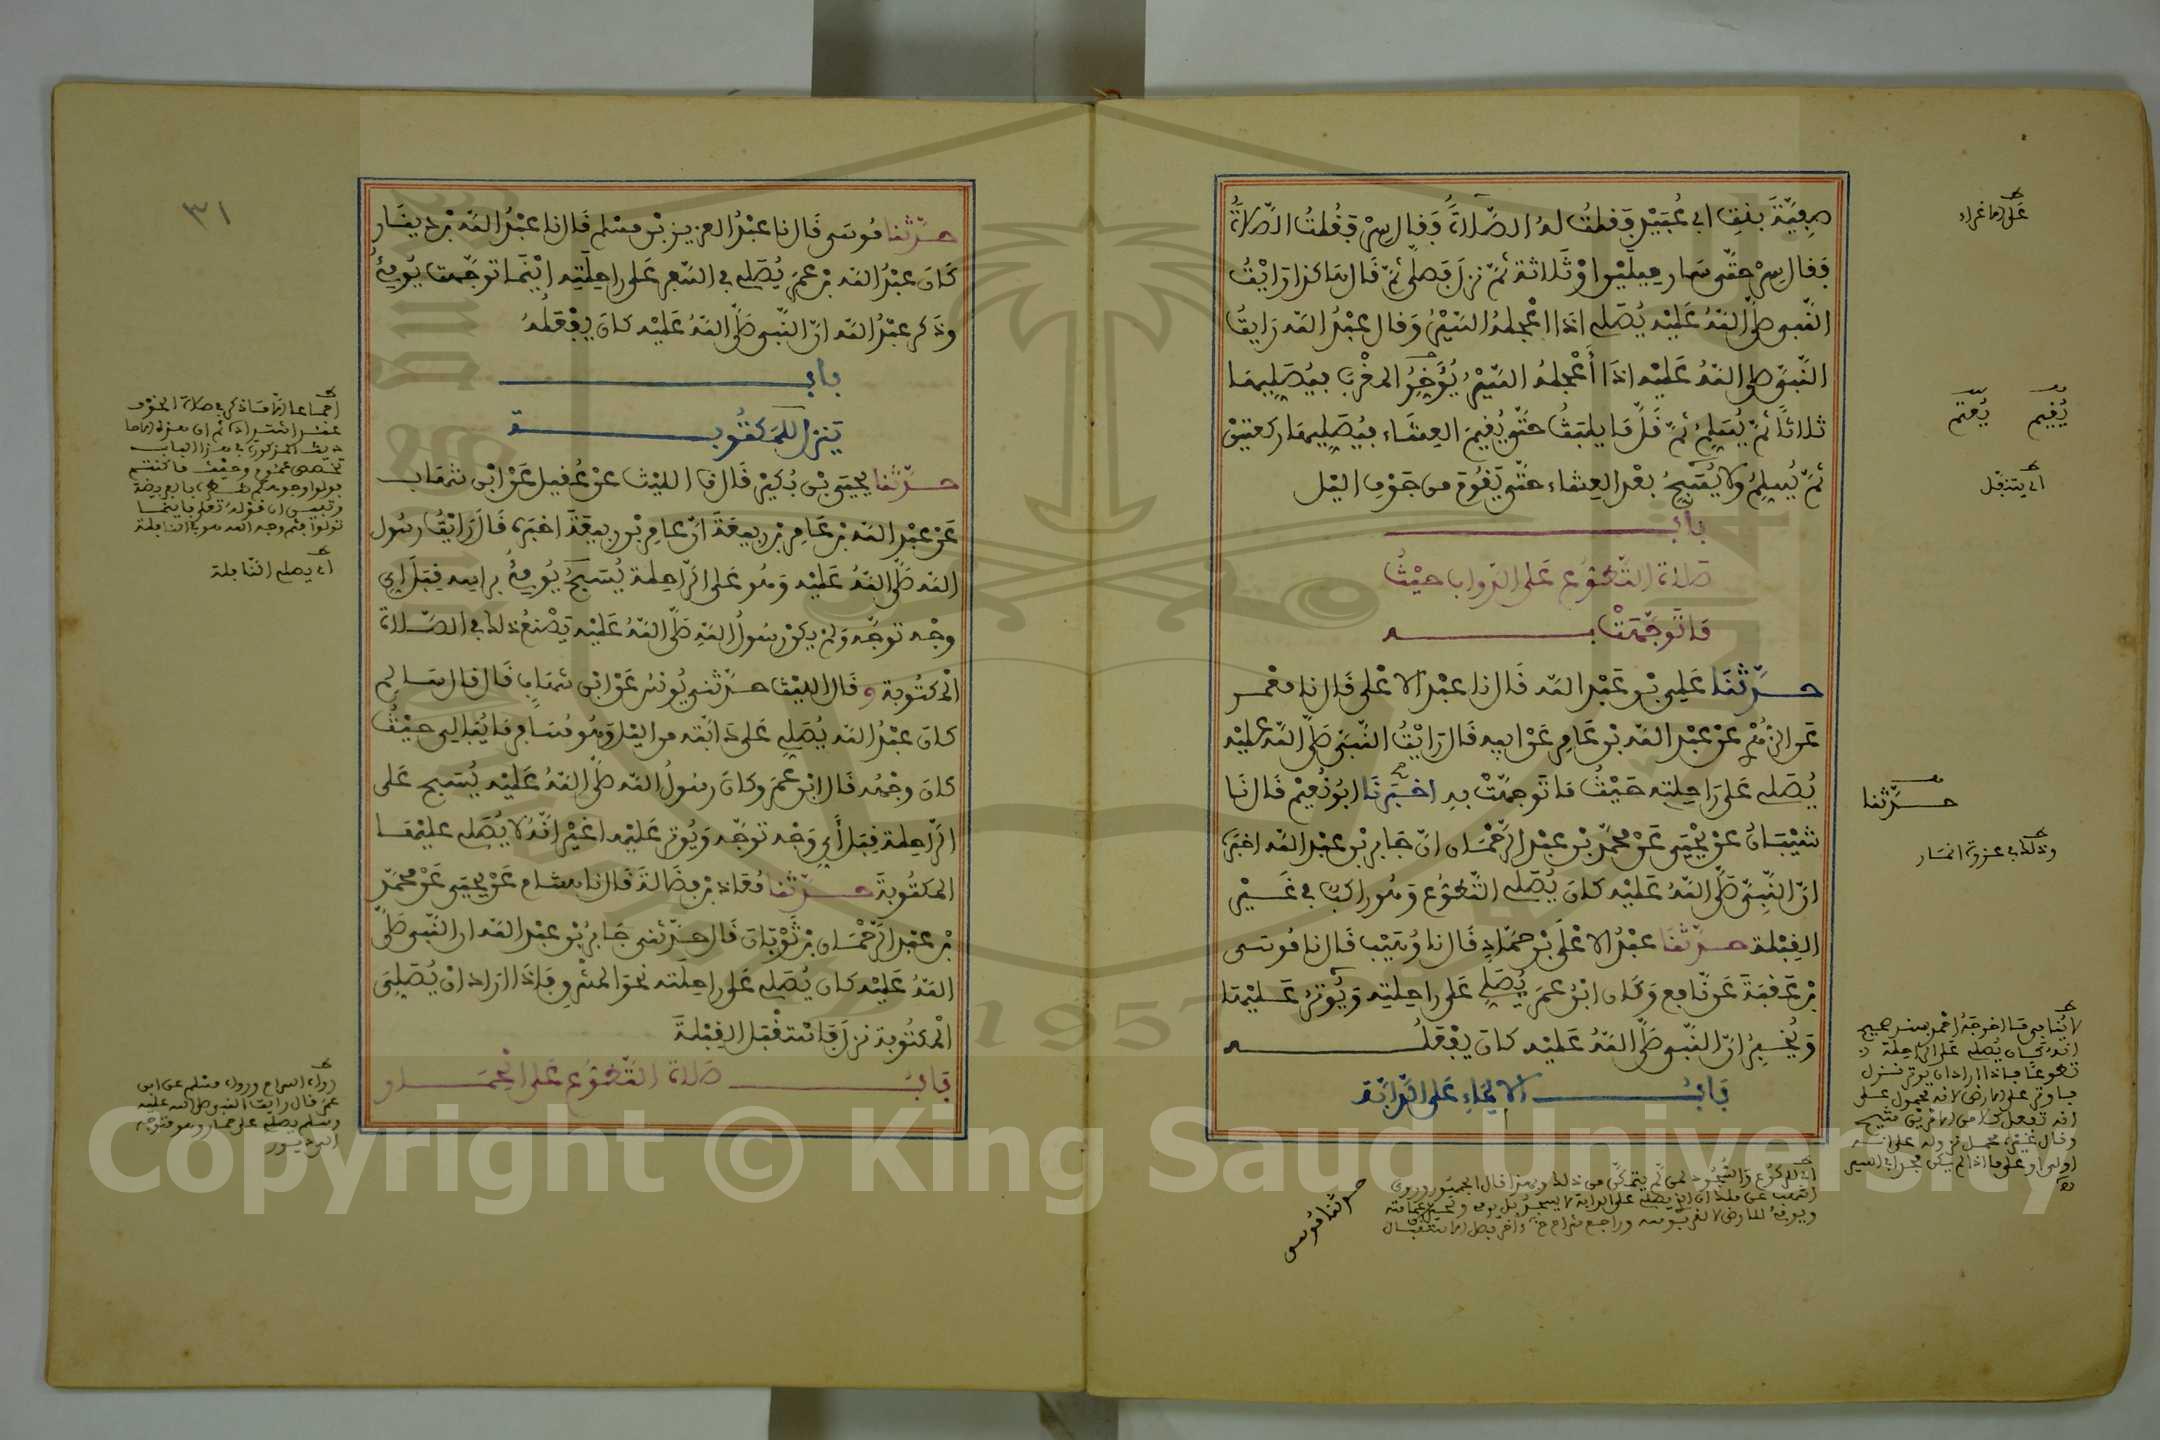 صفية بنت ابي عبيد فقلت له الصلاة فقال سر فقلت الصلاة
فقال سر حتى سار ميلين او ثلاثة ثم نزل فصلى ثم قال هاكذا رايت
النبي صلى الله عليه يصلي اذا اعجله السير وقال عبد الله رايت
النبي صلى الله عليه اذا أعجله السير يؤخر المغرب فيصليها
ثلاثا ثم يسلم ثم قل ما يلبث حتى يقيم العشاء فيصليها ركعتين
ثم يسلم ولا يسبح بعد العشاء حتى يقوم من جوف اليل
باب
صلاة التطوع على الدواب حيث
ما توجهت به
حدثنا علي بن عبد الله قال نا عبد الاعلى قال نا معمر
عن الزهري عن عبد الله بن عامر عن ابيه قال رايت النبي صلى الله عليه
يصلي على راحلته حيث ما توجهت به اخبرنا ابو نعيم قال نا
شيبان عن يحيى عن محمد بن عبد الرحمان ان جابر بن عبد الله اخبره
ان النبي صلى الله عليه كان يصلي التطوع وهو راكب في غير
القبلة حدثنا عبد الاعلى بن حماد قال نا وهيب قال نا موسى
بن عقبة عن نافع وكان ابن عمر يصلي على راحلته ويوتر عليها
ويخبر ان النبي صلى الله عليه كان يفعله
باب الايماء على الدابة
على الاغراء
يقيم يعتم
اي يتنفل
حدثنا
وذلك في غزوة انمار
حدثنا موسى
حدثنا موسى قال نا عبد العزيز بن مسلم قال نا عبد الله بن دينار
كان عبد الله بن عمر يصلي في السفر على راحلته اينما توجهت يومئ
وذكر عبد الله ان النبي صلى الله عليه كان يفعله
باب
ينزل للمكتوبة
حدثنا يحيى بن بكير قال نا الليث عن عقيل عن ابن شهاب
عن عبد الله بن عامر بن ربيعة ان عامر بن ربيعة اخبره قال رايت رسول
الله صلى الله عليه وهو على الراحلة يسبح يومئ براسه قبل اي
وجه توجه ولم يكن رسول الله صلى الله عليه يصنع ذلك في الصلاة
المكتوبة وقال الليث حدثني يونس عن ابن شهاب قال قال سالم
كان عبد الله يصلي على دابته من اليل وهو مسافر ما يبالي حيث
كان وجهه قال ابن عمر وكان رسول الله صلى الله عليه يسبح على
الراحلة قبل أي وجه توجه ويوتر عليها غير انه لا يصلي عليها
المكتوبة حدثنا معاذ بن فضالة قال نا هشام عن يحيى عن محمد
بن عبد الرحمان بن ثوبان قال حدثني جابر بن عبد الله ان النبي صلى
الله عليه كان يصلي على راحلته نحو المشرق فاذا اراد ان يصلي
المكتوبة نزل فاستقبل القبلة
باب صلاة التطوع على الحمار
٣١
اي يصلي النافلة
رواه السراج ورواه مسلم عن ابن
عمر قال رايت النبي صلى الله عليه
وسلم يصلي على حمار وهو متوجه
Copyright © King Saud University
1957